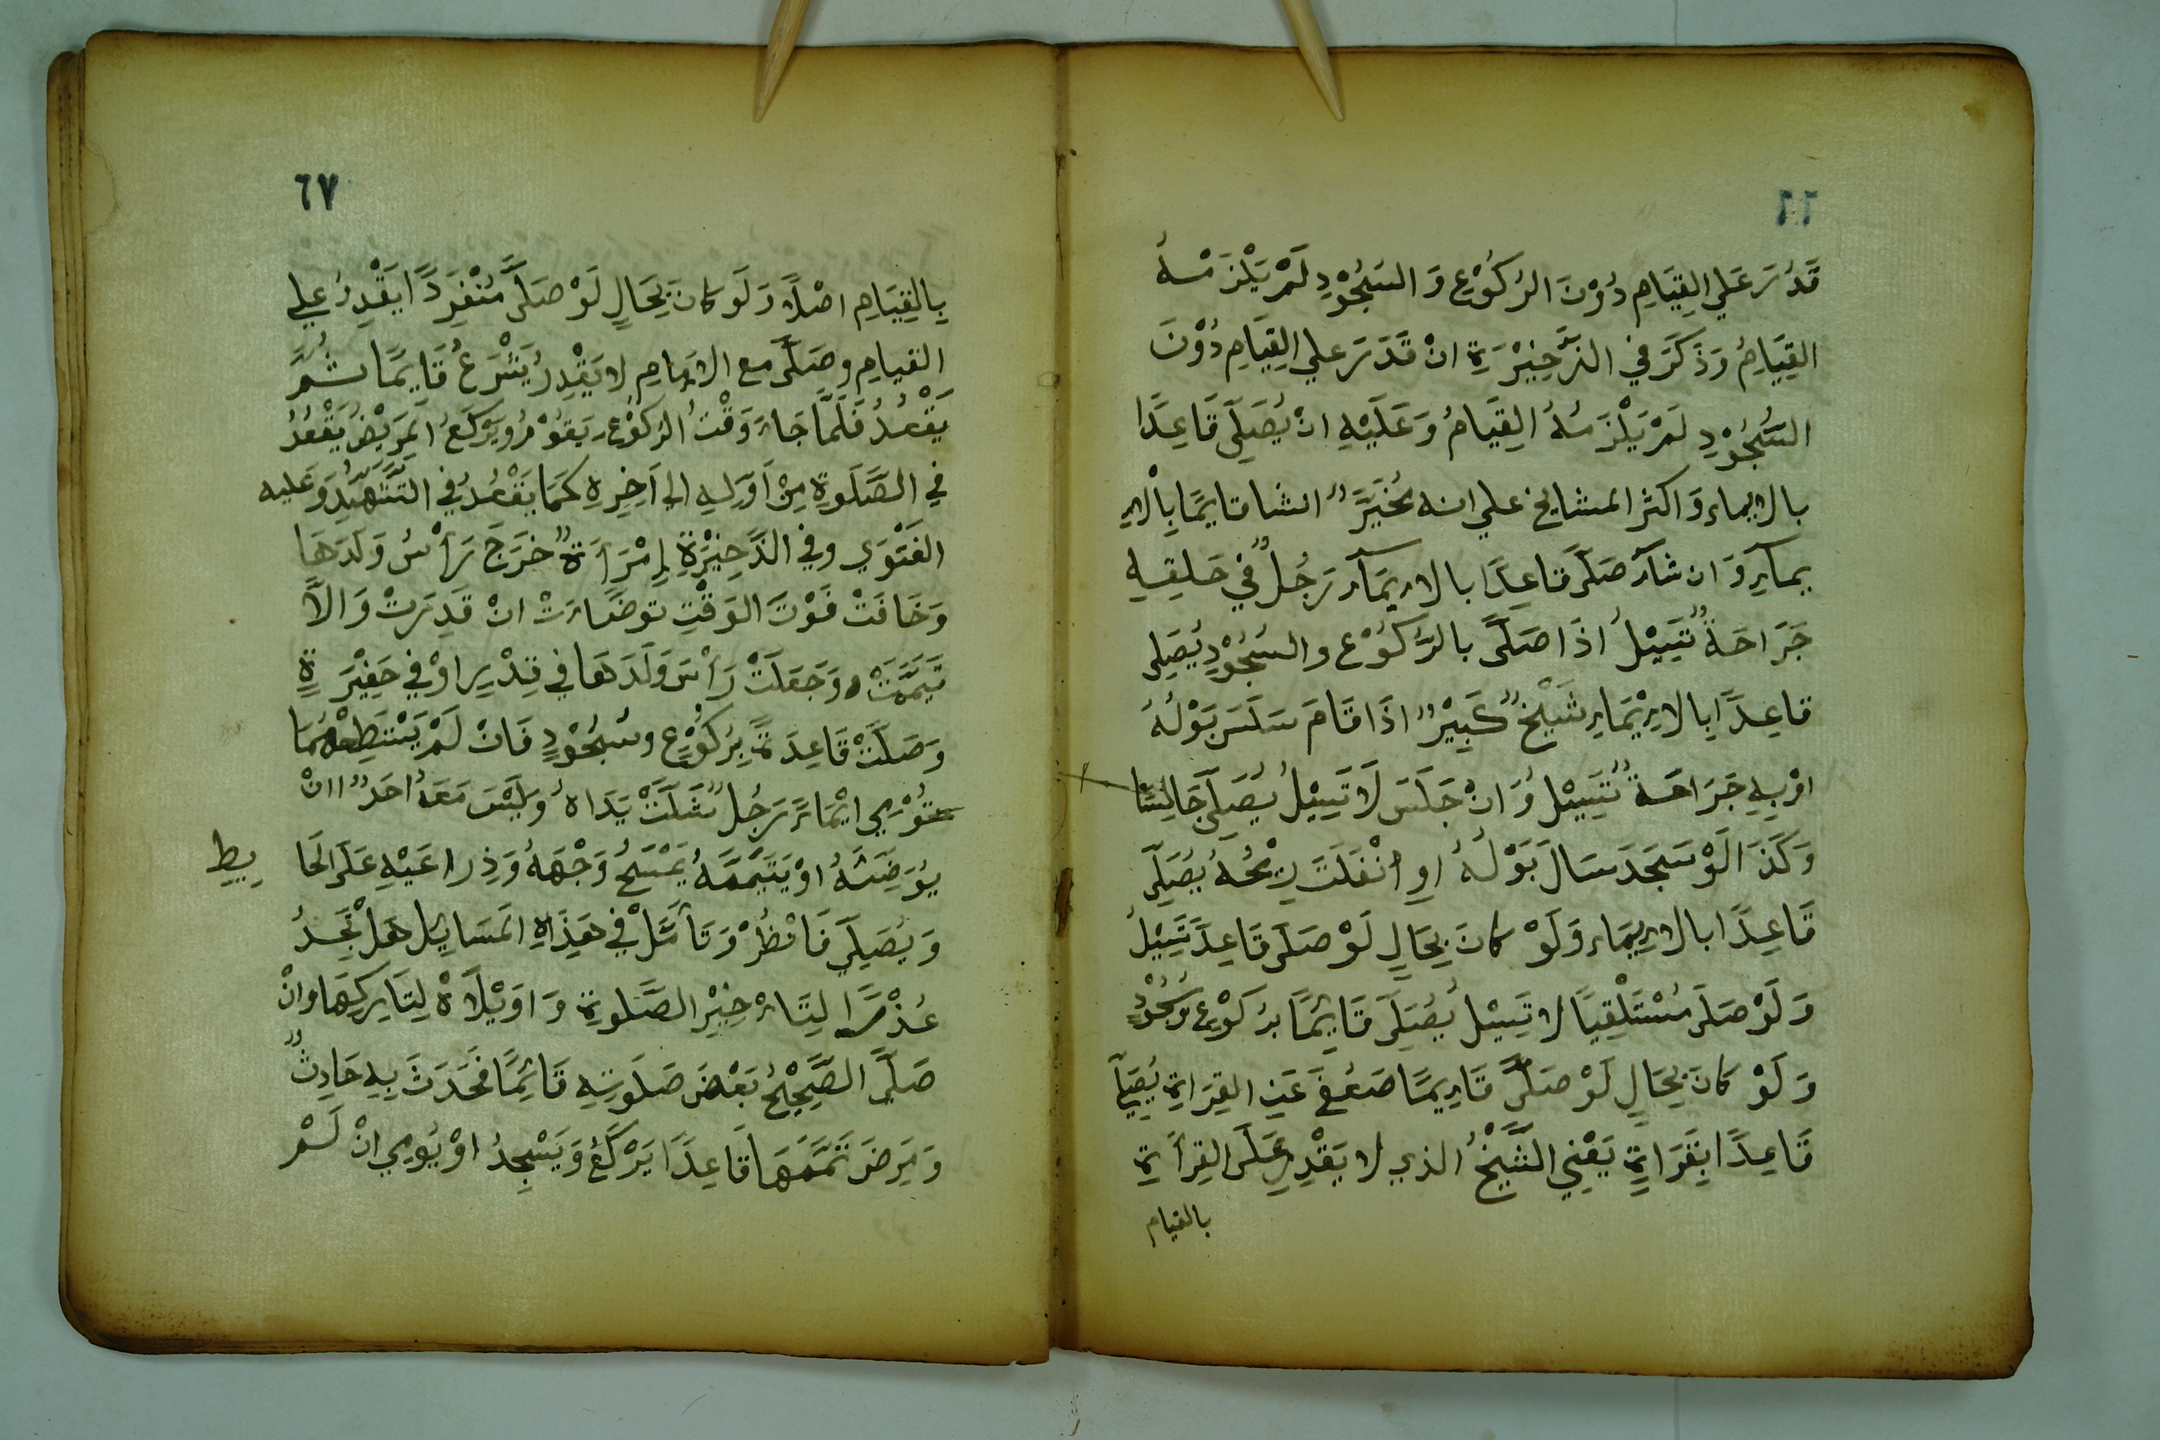 ٦٦
قَدُرَ عَلَي القِيَامِ دُوْنَ الرُكُوْعِ وَ السُجُوْدِ لَمْ يَلْزَمْهُ
القِيَامُ وَذَكَرَ في الذَّخِيْرَةِ انْ قَدَرَ علي القِيَامِ دُوْنَ
السُّجُوْدِ لَمْ يَلْزَمْهُ القِيَامُ وَعَلَيْهِ انْ يُصَلِّيَ قَاعِدًا
بالايماء وَ اكثر المشايخ علي انه مُخَيَّرٌ ان شا قايمًا بِالْاِ
يمآءِ وَ ان شآءَ صَلَّي قاعِدًا بالايمآءِ رَجُلٌ في حَلقِهِ
جَرَاحَةٌ تُسِيْلُ اذَا صَلَّي بالرُكُوْعِ والسُجُوْدِ يُصَلِي
قاعِدًا بِالاِيْمَاءِ شَيْخٌ كَبِيْرٌ اذَا قَامَ سَلَسَ بَوْلُهُ
اوْ بِهِ جَرَاحَةٌ تُسِيْلُ وَ انْ جَلَسَ لَا تَسِيْلُ يُصَلِّي جَالِسًا
وَكَذَا لَوْ سَجَدَ سَالَ بَوْلُهُ اوِ انْفَلَتَ رِيْحُهُ يُصَلِّي
قَاعِدًا بالاِيمَاءِ وَلَوْ كانَ بِحَالٍ لَوْ صَلَّي قَاعِدًا تَسِيْلُ
وَ لَوْ صَلَّي مُسْتَلْقِيًا لا تَسِيْلُ يُصَلِّي قَايِمًا بِرُكوْعٍ وَسُجُوْدٍ
وَ لَوْ كانَ بِحَالٍ لَوْ صَلَّي قَايِمًا ضَعُفَ عَنِ القِرَاةِ يُصَلِّي
قَاعِدًا بِقَرَاةٍ يَعْنِي الشَّيْخُ الذي لا يَقْدِرُ عَلَي القِرَأةِ
بالقيام
٦٧
بِالقِيَامِ اصْلًا وَلَو كانَ بِحَالٍ لَوْ صَلَّي مُنْفَرِدًا يَقْدِرُ علي
القيامِ وصَلَّي مع الاِمَامِ لا يَقْدِرُ يَشْرَعُ قَايِمًا ثُمَّ
يَقْعُدُ فَلَمَّا جَاءَ وَقْتُ الرُكُوْعِ يَقُوْمُ وَيَرْكَعُ المَرِيْضُ يَقْعُدُ
في الصَّلَوةِ مِنْ اَوَّلِهِ الي آخِرِهِ كَمَا يَقْعُدُ في التَّشَهُّدِ وَعليه
الفَتْوَي وفي الذَّخِيْرَةِ اِمْرَأةٌ خرَجَ رَأْسُ وَلَدِهَا
وَخَافَتْ فَوْتَ الوَقْتِ توضَاءَتْ انْ قَدِرَتْ وَ الَّا
تَيَمَّمَتْ وَجَعَلَتْ رَأسَ وَلَدِهَا في قِدْرٍ اوْ في حَفِيْرَةٍ
وَصَلَّتْ قَاعِدَةً بِرُكُوْعٍ وسُجُوْدٍ فَانْ لَمْ يَسْتَطِعْهُمَا
تُوْمِي ايْمَاءً رَجُلٌ شَلَّتْ يَدَاهُ وَلَيْسَ مَعَهُ احَدٌ انْ
يُوَضِّئَهُ اوْ يَتَيَمَّمَهُ يَمْسَحُ وَجْهَهُ وَذِراعَيْهِ عَلَي الحَا
يطِ
وَ يُصَلِّي فَانْظُرْ وَ تَأَمَّلْ في هَذِهِ المَسَايِلِ هَلْ تَجِدُ
عُذْرًا لِتَاخِيْرِ الصَّلوةِ وَ اوَيْلَاهْ لِتَارِكِهَا وانْ
صَلَّي الصَّحِيْحُ بَعْضَ صَلَوتِهِ قَائِمًا فَحَدَثَ بِهِ حَادِثٌ
وَ مَرِضَ تَمَّمَهَا قَاعِدًا يَرْكَعُ وَ يَسْجِدُ اوْ يُومِي انْ لَمْ